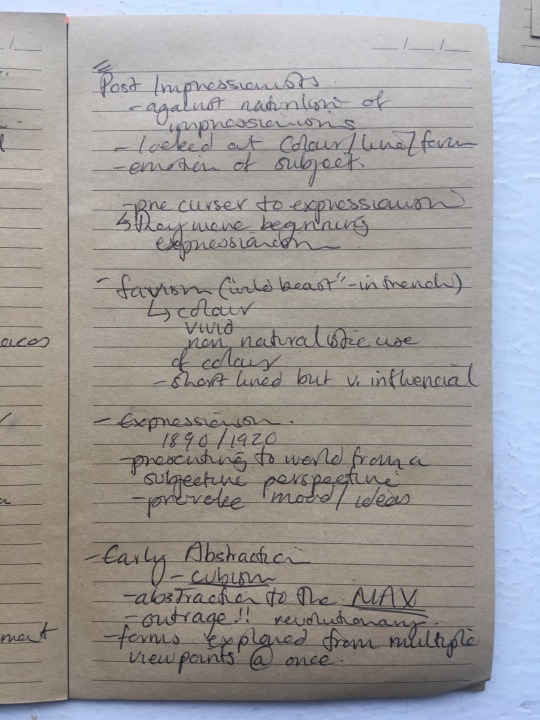 __/__/__
Post Impressionists
- against naturilism of
impressionis
- looked at colour/line/form
- emotion of subject.
- pre curser to expressionism
↳ they were beginning
expressionism
- favism ("wild beast" - in french)
↳ colour
vivid
non naturalistic use
of colour
- short lived but v. influencial
- Expressionism.
1890/1920
- presenting to world from a
subjective perspective
- provoke mood/ideas
- Early Abstraction
- cubism
- abstraction to the MAX
- outrage!! revolutionary.
- forms explored from multiple
view points @ once.
aces
ment